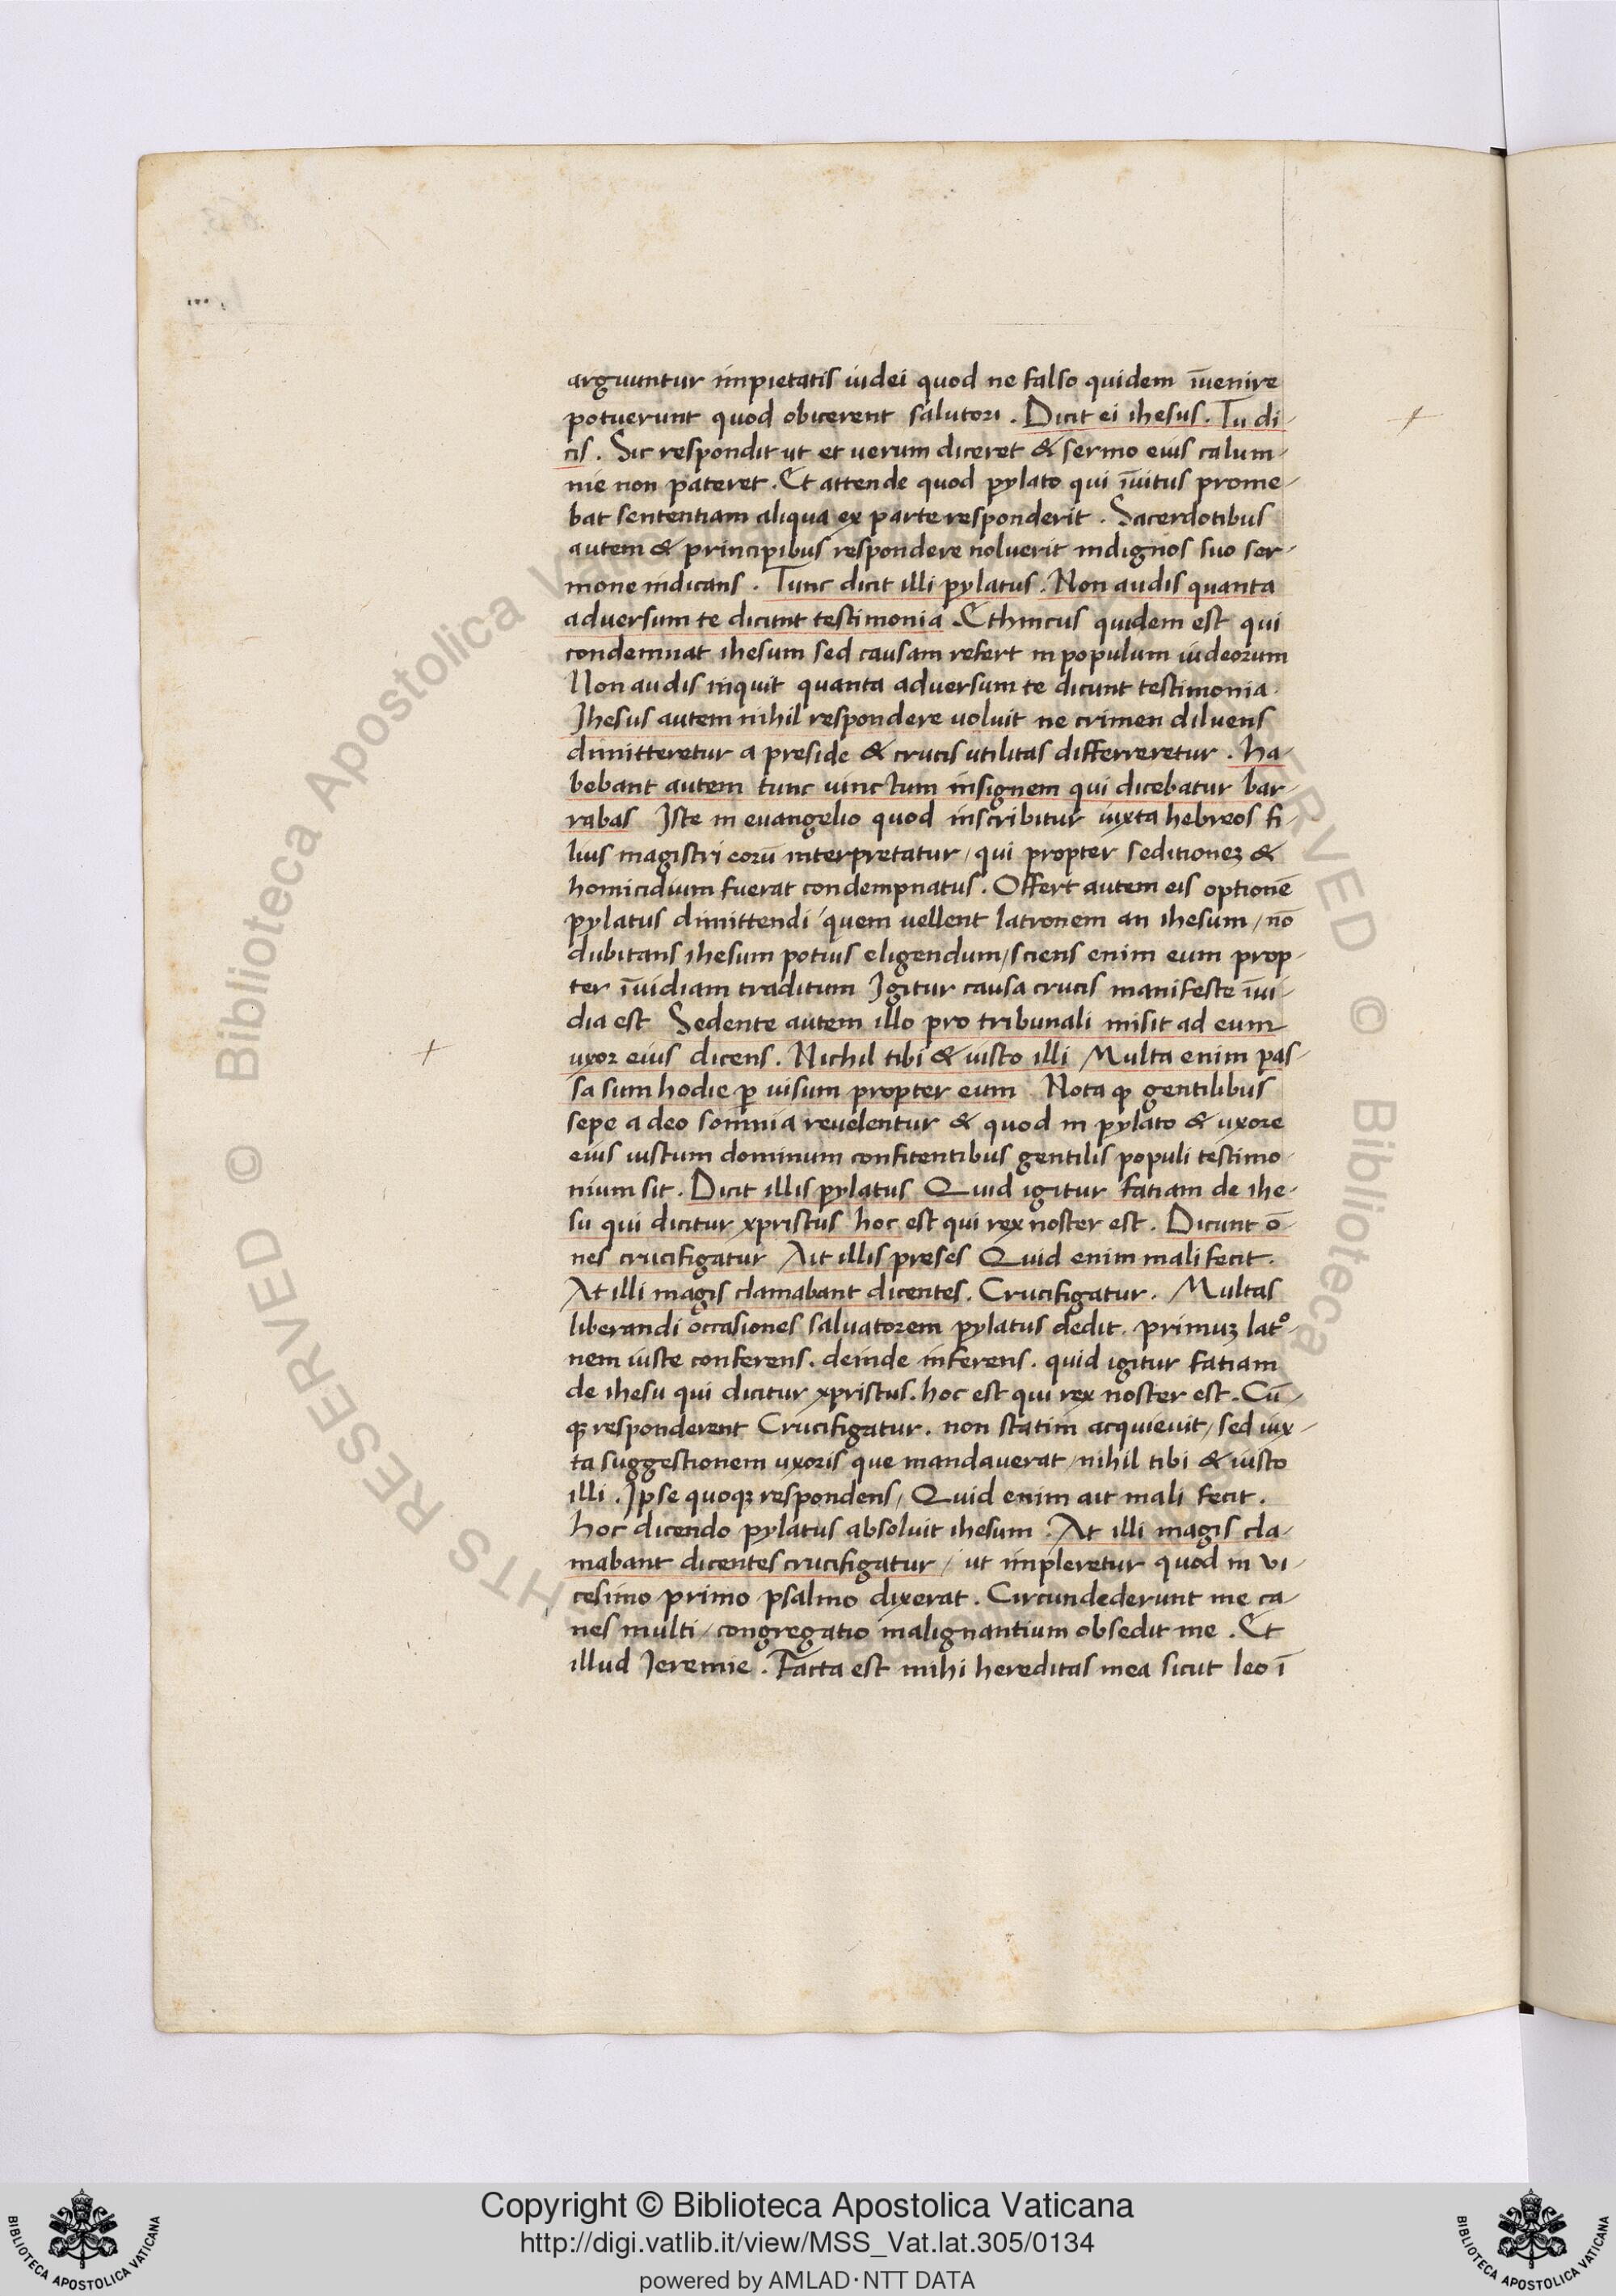 arguuntur impietatis iudei quod ne falso quidem īuenire
potuerunt quod obicerent salutori . Dicit ei ihesus . Tu di-
cis . Sic respondit ut et uerum diceret & sermo eius calum-
nie non pateret . Et attende quod pylato qui īuitus prome-
bat sententiam aliqua ex parte responderit . Sacerdotibus
autem & principibus respondere noluerit indignos suo ser-
mone indicans . Tunc dicit illi pylatus . Non audis quanta
adversum te dicunt testimonia . Ethnicus quidem est qui
condemnat ihesum sed causam refert in populum iudeorum
Non audis inquit quanta adversum te dicunt testimonia .
Jhesus autem nihil respondere uoluit ne crimen diluens
dimitteretur a preside & crucis utilitas differreretur . ha-
bebant autem tunc uinctum insignem qui dicebatur bar-
rabas Iste in euangelio quod inscribitur iuxta hebreos fi-
lius magistri eorū interpretatur / qui propter seditionez &
homicidium fuerat condempnatus . Offert autem eis optionē
pylatus dimittendi quem uellent latronem an ihesum / nō
dubitans ihesum potius eligendum / sciens enim eum prop-
ter īuidiam traditum Igitur causa crucis manifeste īui-
dia est Sedente autem illo pro tribunali misit ad eum
uxor eius dicens . Nichil tibi & iusto illi Multa enim pas-
sa sum hodie ꝑ uisum propter eum Nota ꝙ gentilibus
sepe a deo somnia reuelentur & quod in pylato & uxore
eius iustum dominum confitentibus gentilis populi testimo-
nium sit . Dicit illis pylatus Quid igitur fatiam de ihe-
su qui dicitur xpristus hoc est qui rex noster est . Dicunt ō-
nes crucifigatur Ait illis preses Quid enim mali fecit .
At illi magis clamabant dicentes . Crucifigatur . Multas
liberandi occasiones saluatorem pylatus dedit . primuz latº-
nem iuste conferens . deinde inferens . quid igitur fatiam
de ihesu qui dicitur xpristus . hoc est qui rex noster est . Cū-
qȝ responderent Crucifigatur . non statim acquieuit / sed iux-
ta suggestionem uxoris que mandauerat / nihil tibi & iusto
illi . Ipse quoqȝ respondens / Quid enim ait mali fecit .
hoc dicendo pylatus absoluit ihesum . At illi magis cla-
mabant dicentes crucifigatur / ut impleretur quod in vi-
cesimo primo psalmo dixerat . Circundederunt me ca-
nes multi / congregatio malignantium obsedit me . Et
illud Jeremie . Facta est mihi hereditas mea sicut leo ī
© Biblioteca Apostolica Vaticana
RIGHTS RESERVED © Biblioteca
Copyright © Biblioteca Apostolica Vaticana
http://digi.vatlib.it/view/MSS_Vat.lat.305/0134
powered by AMLAD · NTT DATA
BIBLIOTECA APOSTOLICA VATICANA
BIBLIOTECA APOSTOLICA VATICANA